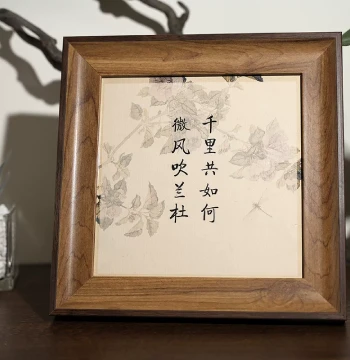 千里共如何
微风吹兰杜